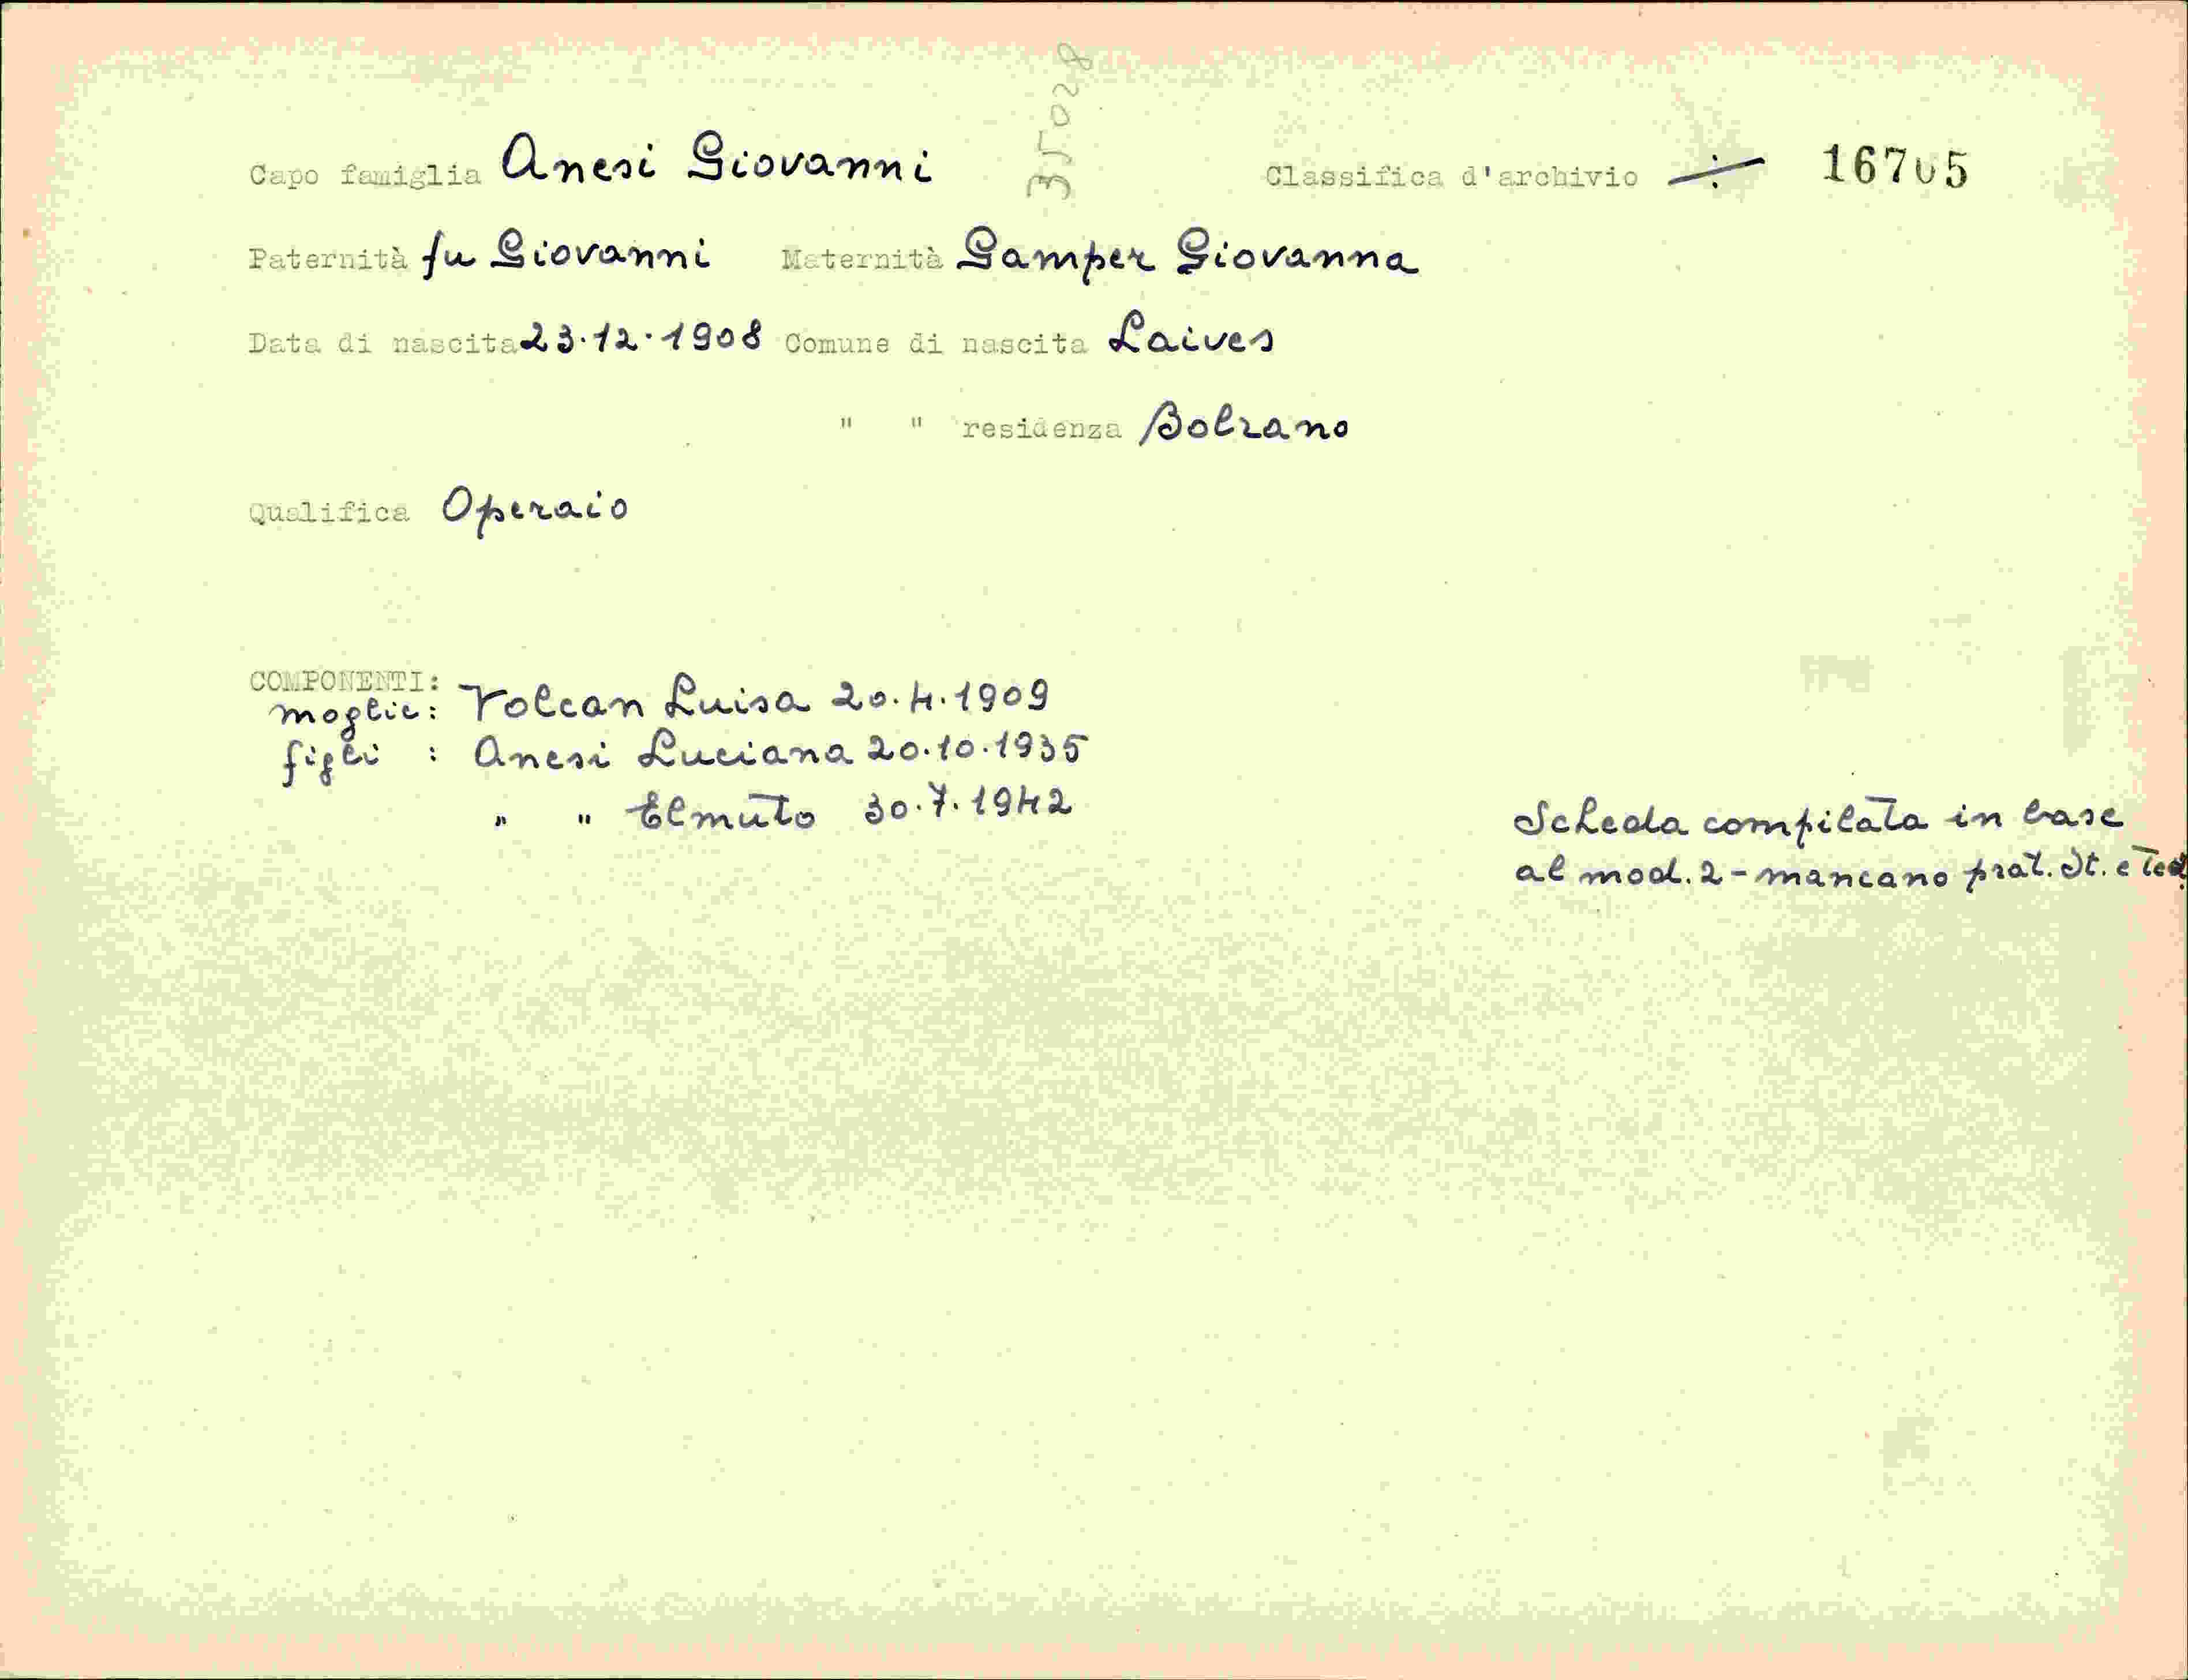 35028
Capo famiglia Anesi Giovanni Classifica d'archivio ÷ 16705
Paternità fu Giovanni Maternità Gamper Giovanna
Data di nascita 23.12.1908 Comune di nascita Laives
" " residenza Bolzano
Qualifica Operaio
COMPONENTI:
moglie: Volcan Luisa 20.4.1909
figli : Anesi Luciana 20.10.1935
" " Elmuto 30.7.1942
Scheda compilata in base
al mod. 2 - mancano prat. It. e Ted.